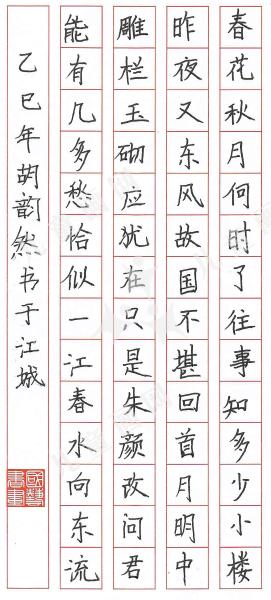 春花秋月何时了往事知多少小楼
昨夜又东风故国不堪回首月明中
雕栏玉砌应犹在只是朱颜改问君
能有几多愁恰似一江春水向东流
乙巳年胡韵然书于江城
國藝書畫